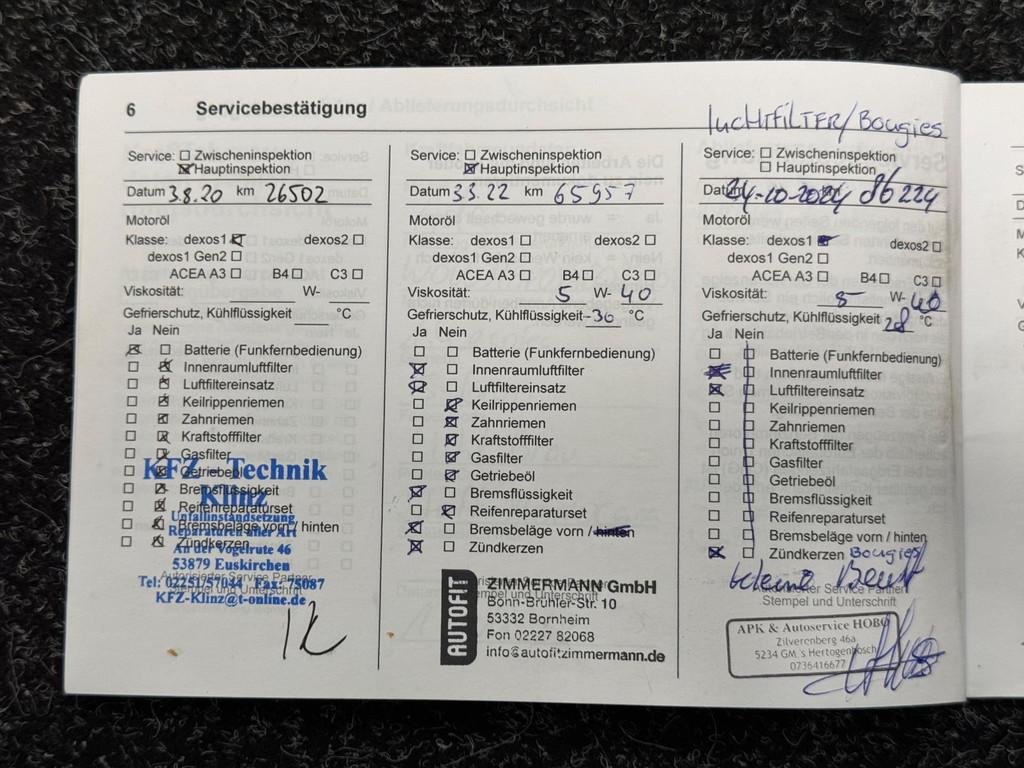 6 Servicebestätigung
Service: Zwischeninspektion
Hauptinspektion
Datum 3.8.20 km 26502
Motoröl
Klasse: dexos1 dexos2
dexos1 Gen2
ACEA A3 B4 C3
Viskosität: W-
Gefrierschutz, Kühlflüssigkeit °C
Ja Nein
Batterie (Funkfernbedienung)
Innenraumluftfilter
Luftfiltereinsatz
Keilrippenriemen
Zahnriemen
Kraftstofffilter
Gasfilter
Getriebeöl
Bremsflüssigkeit
Reifenreparaturset
Bremsbeläge vorn / hinten
Zündkerzen
Autorisierter Service Partner
Stempel und Unterschrift
KFZ-Technik
Klinz
Unfallinstandsetzung
Reparaturen aller Art
An der Vogelrute 46
53879 Euskirchen
Tel: 02251/57044 Fax: 75087
KFZ-Klinz@t-online.de
Service: Zwischeninspektion
Hauptinspektion
Datum 3.3.22 km 65957
Motoröl
Klasse: dexos1 dexos2
dexos1 Gen2
ACEA A3 B4 C3
Viskosität: 5 W- 40
Gefrierschutz, Kühlflüssigkeit -30 °C
Ja Nein
Batterie (Funkfernbedienung)
Innenraumluftfilter
Luftfiltereinsatz
Keilrippenriemen
Zahnriemen
Kraftstofffilter
Gasfilter
Getriebeöl
Bremsflüssigkeit
Reifenreparaturset
Bremsbeläge vorn / hinten
Zündkerzen
Stempel und Unterschrift
AUTOFIT
ZIMMERMANN GmbH
Bonn-Brühler-Str. 10
53332 Bornheim
Fon 02227 82068
info@autofitzimmermann.de
lucHTFiLTER/Bougies
Service: Zwischeninspektion
Hauptinspektion
Datum 24-10-2024 86224
Motoröl
Klasse: dexos1 dexos2
dexos1 Gen2
ACEA A3 B4 C3
Viskosität: 5 W- 40
Gefrierschutz, Kühlflüssigkeit 28 °C
Ja Nein
Batterie (Funkfernbedienung)
Innenraumluftfilter
Luftfiltereinsatz
Keilrippenriemen
Zahnriemen
Kraftstofffilter
Gasfilter
Getriebeöl
Bremsflüssigkeit
Reifenreparaturset
Bremsbeläge vorn / hinten
Zündkerzen Bougies
kleine Beurt
Autorisierter Service Partner
Stempel und Unterschrift
APK & Autoservice HOBO
Zilverenberg 46a
5234 GM 's Hertogenbosch
0736416677